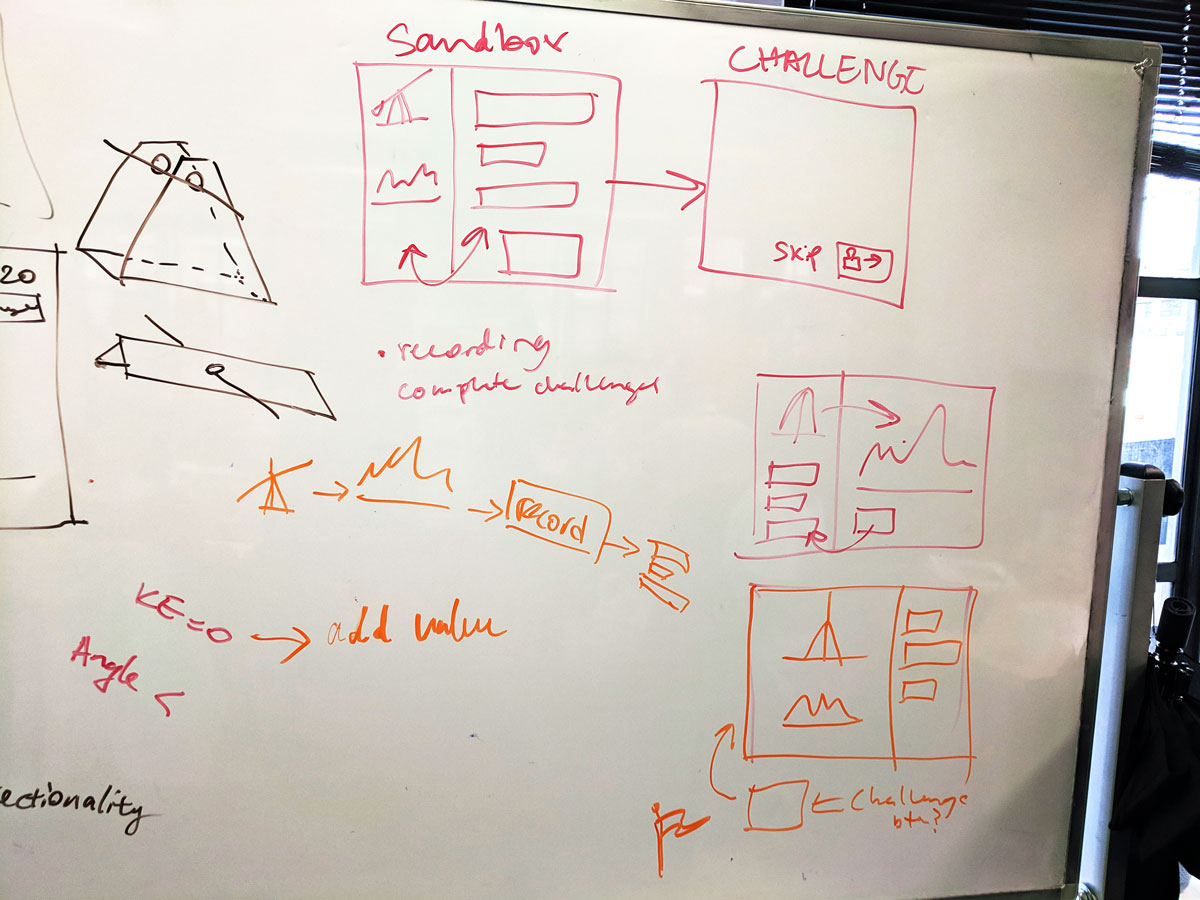 Sandbox
CHALLENGE
20
skip
• recording
complete challenges
record
KE=0 → add value
Angle <
ectionality
← Challenge
btn?